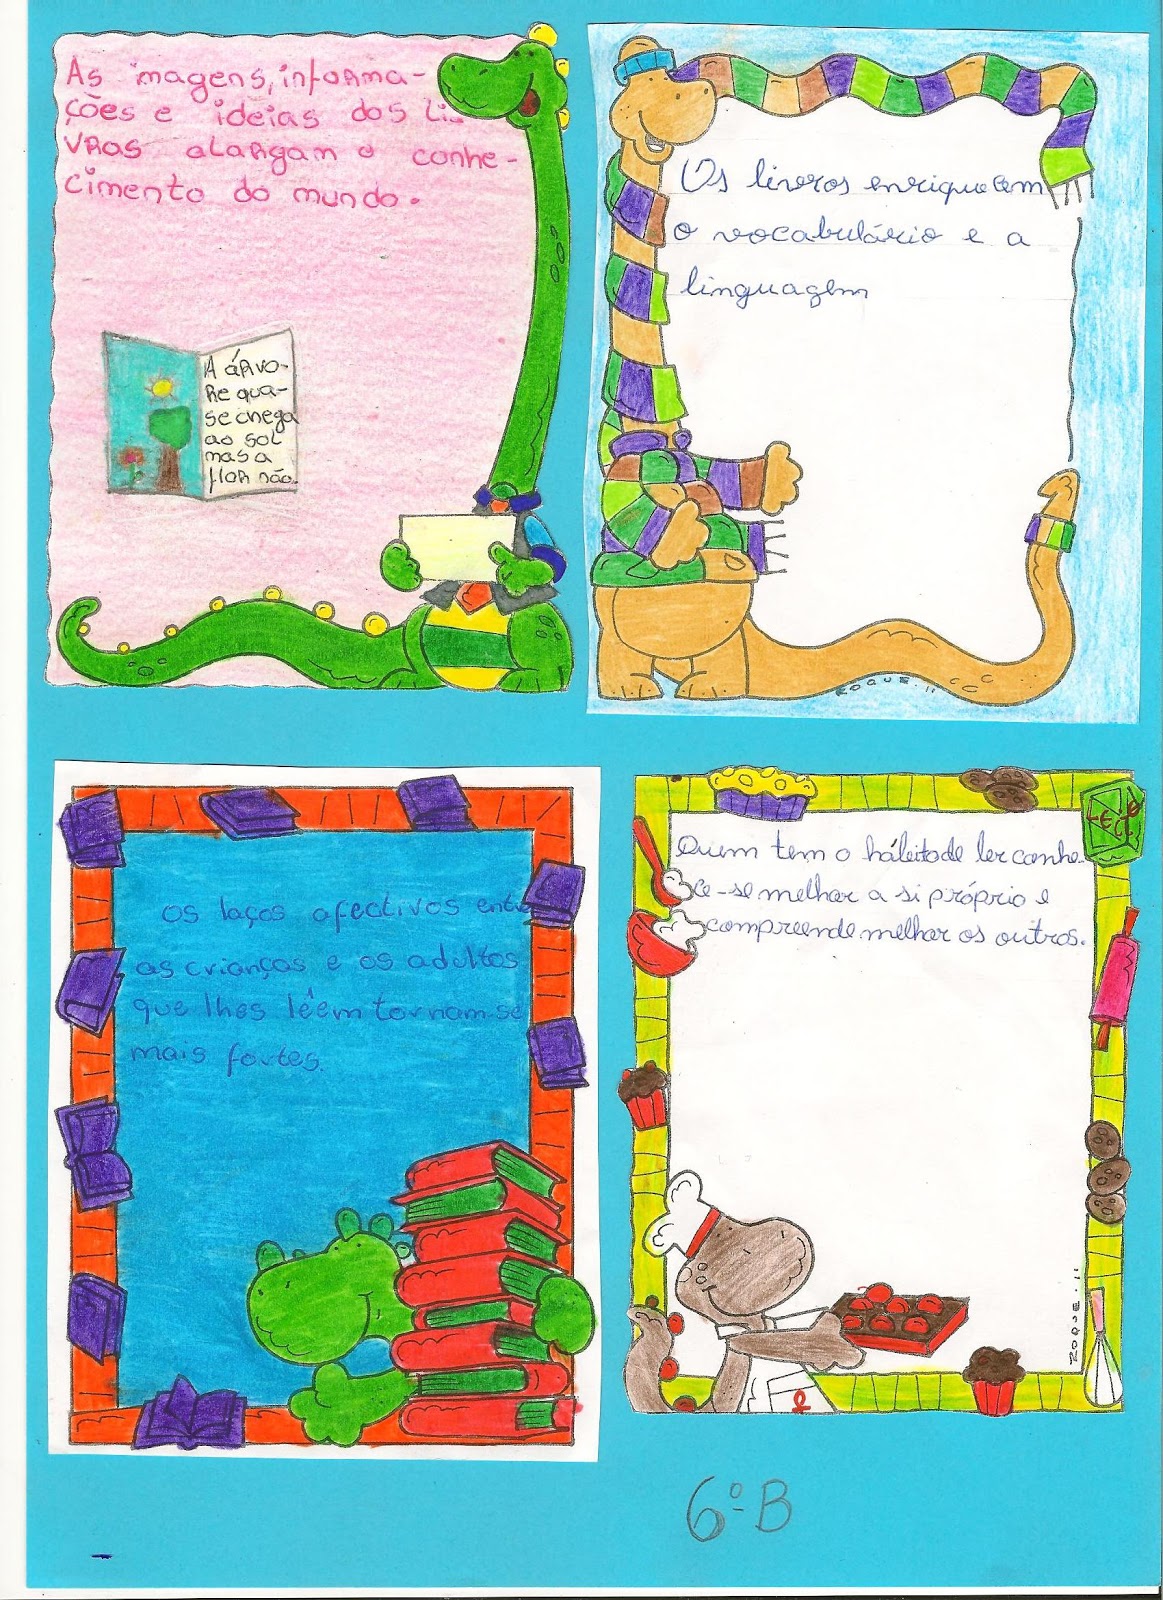 As imagens, informa-
ções e ideias dos li-
vros alargam o conhe-
cimento do mundo.
A árvo-
re qua-
se chega
ao sol
mas a
flor não.
Os livros enriquecem
o vocabulário e a
linguagem
ROQUE.11
Os laços afectivos entre
as crianças e os adultos
que lhes lêem tornam-se
mais fortes.
LEITE
Quem tem o hábito de ler conhe-
ce-se melhor a si próprio e
compreende melhor os outros.
ROQUE.11
6º B